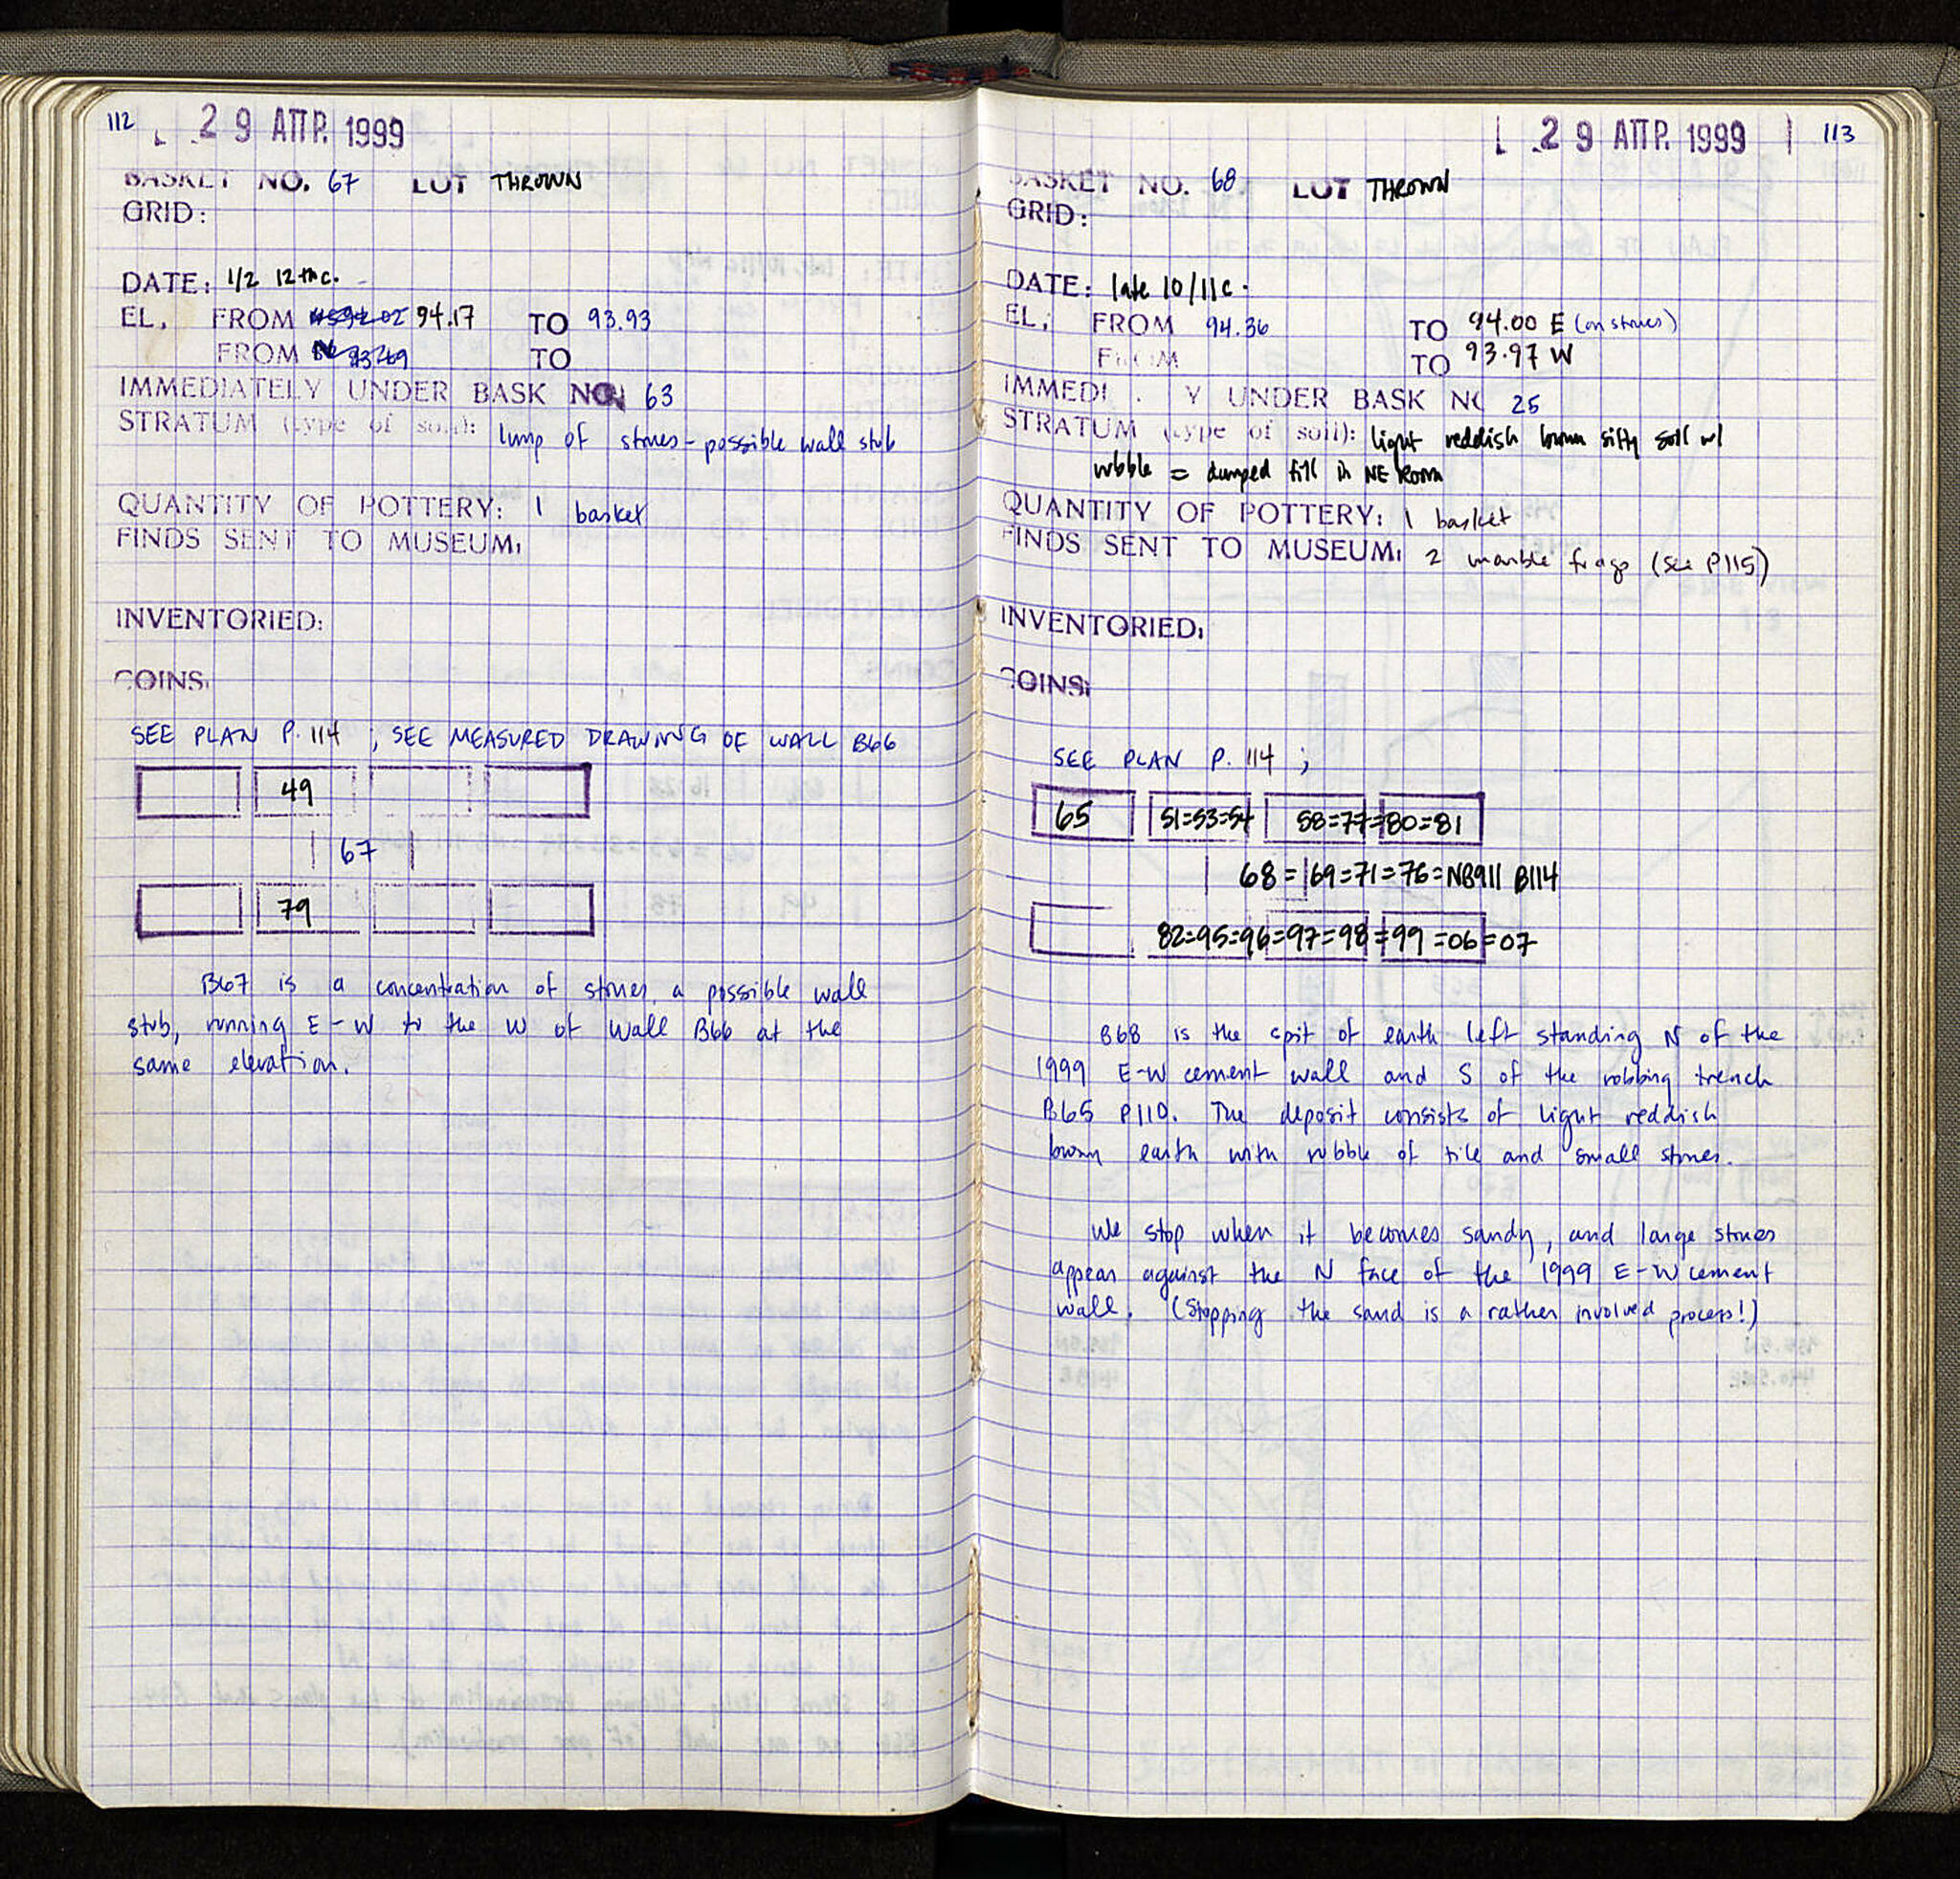 112
29 ΑΠΡ. 1999
BASKET NO. 67 LOT THROWN
GRID:
DATE: 1/2 12th c.
EL, FROM 94.17 TO 93.93
FROM TO
IMMEDIATELY UNDER BASK NO. 63
STRATUM (type of soil): lump of stones - possible wall stub
QUANTITY OF POTTERY: 1 basket
FINDS SENT TO MUSEUM:
INVENTORIED:
COINS:
SEE PLAN P. 114 ; SEE MEASURED DRAWING OF WALL B66
49
67
79
B67 is a concentration of stones, a possible wall
stub, running E-W to the W of Wall B66 at the
same elevation.
29 ΑΠΡ. 1999
113
BASKET NO. 68 LOT THROWN
GRID:
DATE: late 10/11c.
EL; FROM 94.36 TO 94.00 E (on stones)
FROM TO 93.97 W
IMMEDI Y UNDER BASK NO 25
STRATUM (type of soil): light reddish brown silty soil w/
rubble = dumped fill in NE Room
QUANTITY OF POTTERY: 1 basket
FINDS SENT TO MUSEUM: 2 marble frags (see P115)
INVENTORIED:
COINS:
SEE PLAN P. 114 ;
65 51=53=54 58=77=80=81
68=69=71=76=NB911 B114
82=95=96=97=98=99=06=07
B68 is the spit of earth left standing N of the
1999 E-W cement wall and S of the robbing trench
B65 P110. The deposit consists of light reddish
brown earth with rubble of tile and small stones.
We stop when it becomes sandy, and large stones
appear against the N face of the 1999 E-W cement
wall. (Stopping the sand is a rather involved process!)